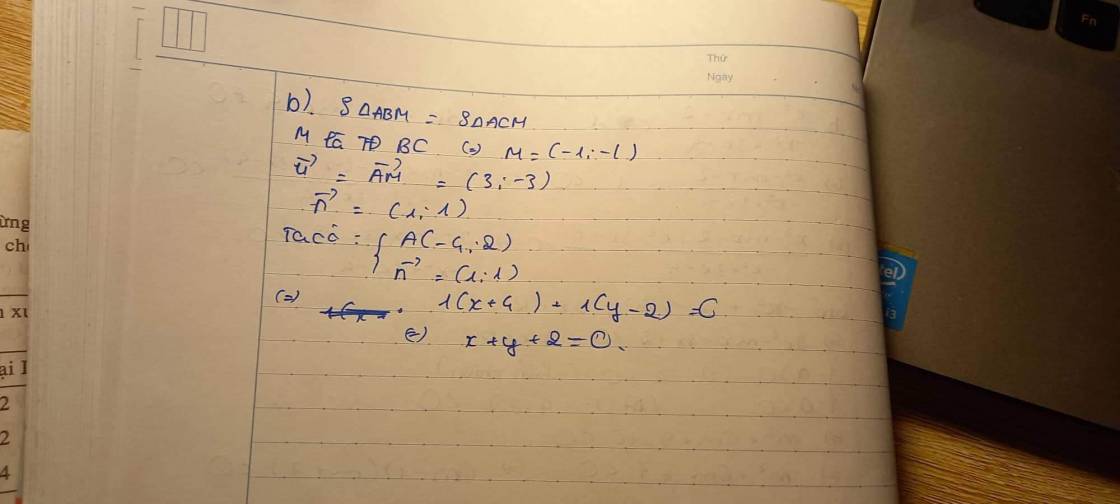 Thứ
Ngày
b). SΔABM = SΔACM
M là TĐ BC (=) M = (-1; -1)
u⃗ = AM⃗ = (3; -3)
n⃗ = (1; 1)
Ta có : { A(-4; 2)
n⃗ = (1; 1)
(=) 1(x+4) + 1(y-2) = 0
(=) x + y + 2 = 0.
Fn
ừng
ch
n xu
ại I
2
2
4
tel
i3